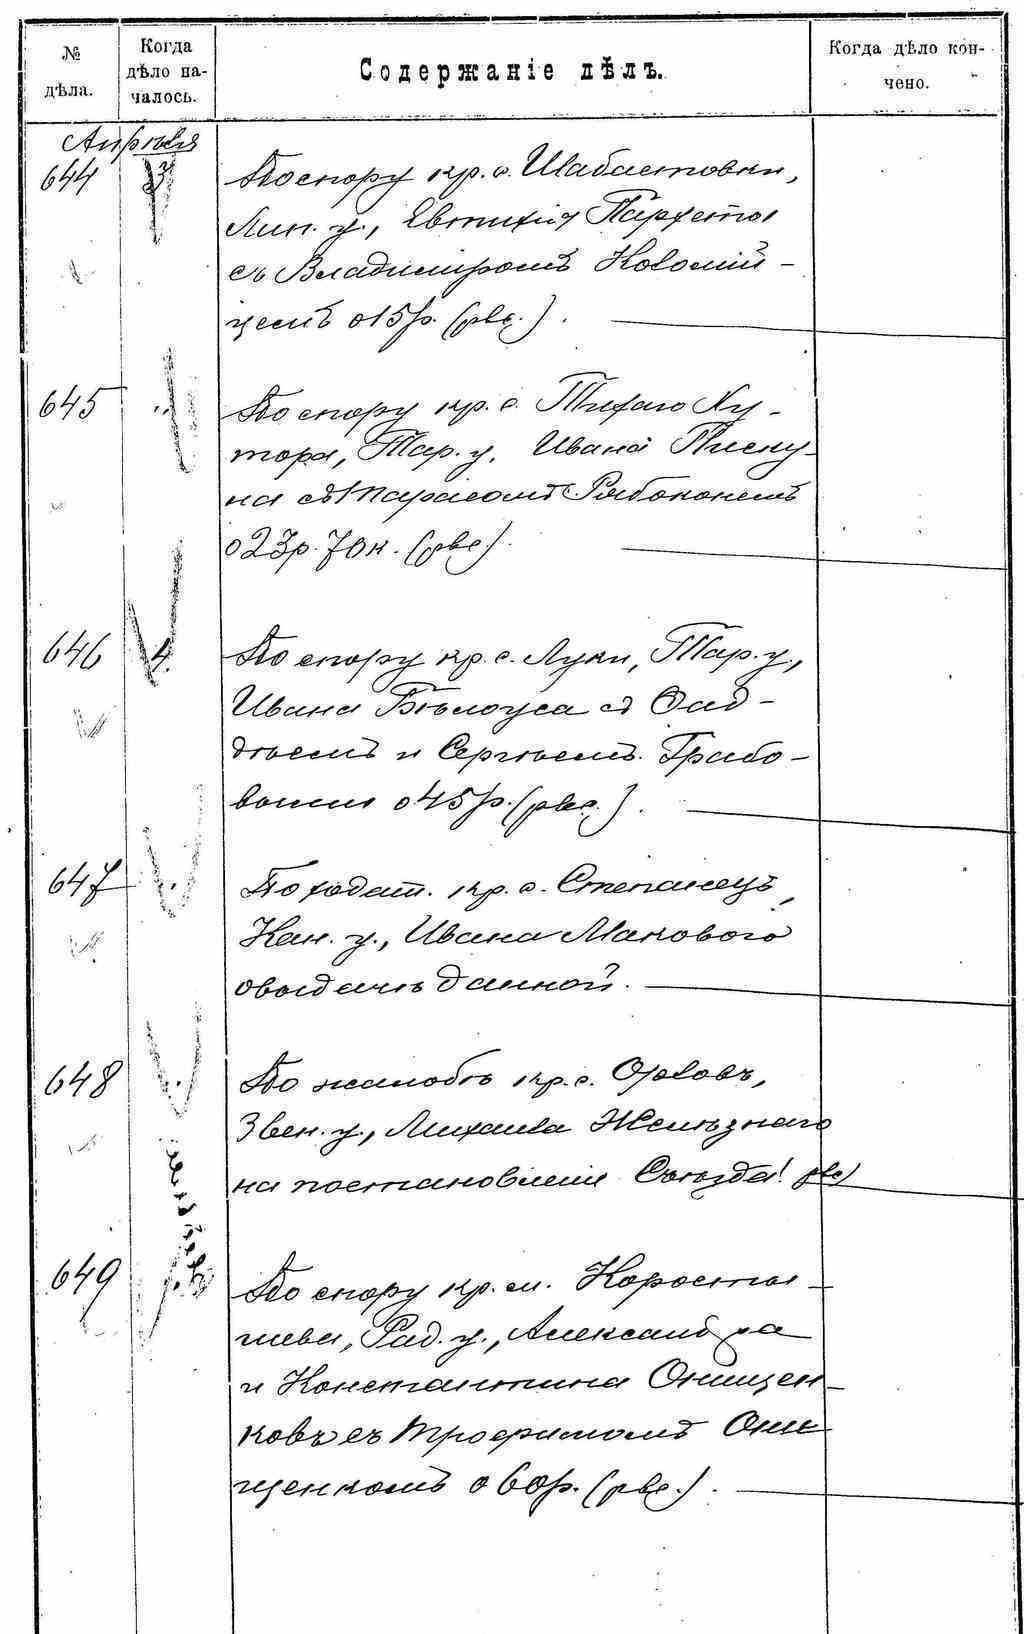 № дѣла.
Когда дѣло на-
чалось.
Содержаніе дѣлъ.
Когда дѣло кон-
чено.
Апрѣля
644 3 По спору кр. с. Шабастовки,
Лип. у., Евтихія Пархеты
съ Владимиромъ Коломій-
цемъ о 15 р. (рвс.).
645 " По спору кр. с. Тихаго Ху-
тора, Тар. у. Ивана Писку-
на съ Тарасомъ Рябоконемъ
о 23 р. 70 к. (рвс.).
646 4. По спору кр. с. Луки, Тар. у.,
Ивана Бѣлоуса съ Фад-
дѣемъ и Сергѣемъ Грабо-
выми о 45 р. (рвс.).
647 " По ходат. кр. с. Степанецъ,
Кан. у., Ивана Макового
о выдачѣ данной.
648 " По жалобѣ кр. с. Орловъ,
Звен. у., Михаила Желѣзнаго
на постановленіе Съѣзда! рвс)
649 По спору кр. м. Коросты-
шева, Рад. у., Александра
и Константина Онищен-
ковъ съ Трофимомъ Они
щенкомъ о 60 р. (рвс.).